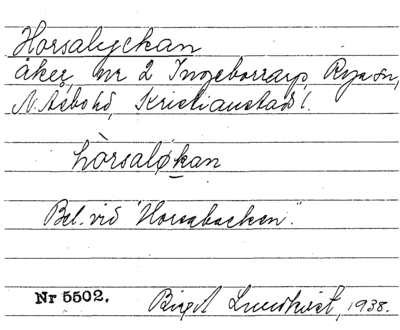 Horsalyckan
åker nr 2 Ingeborrarp, Rya sn,
N. Åsbo hd, Kristianstads l.
hòrsaløkan
Bel. vid "Horsabacken".
Nr 5502. Birgit Lundkvist, 1938.